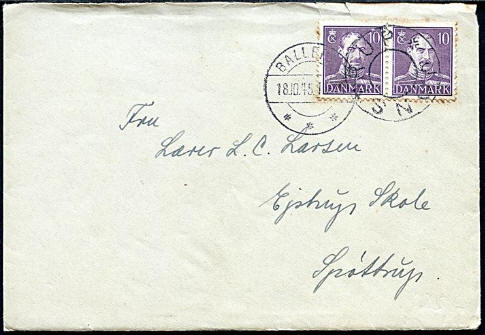 10 10
DANMARK DANMARK
BALLE
18.10.45
Fru
Lærer L. C. Larsen
Ejstrup Skole
Spøttrup.